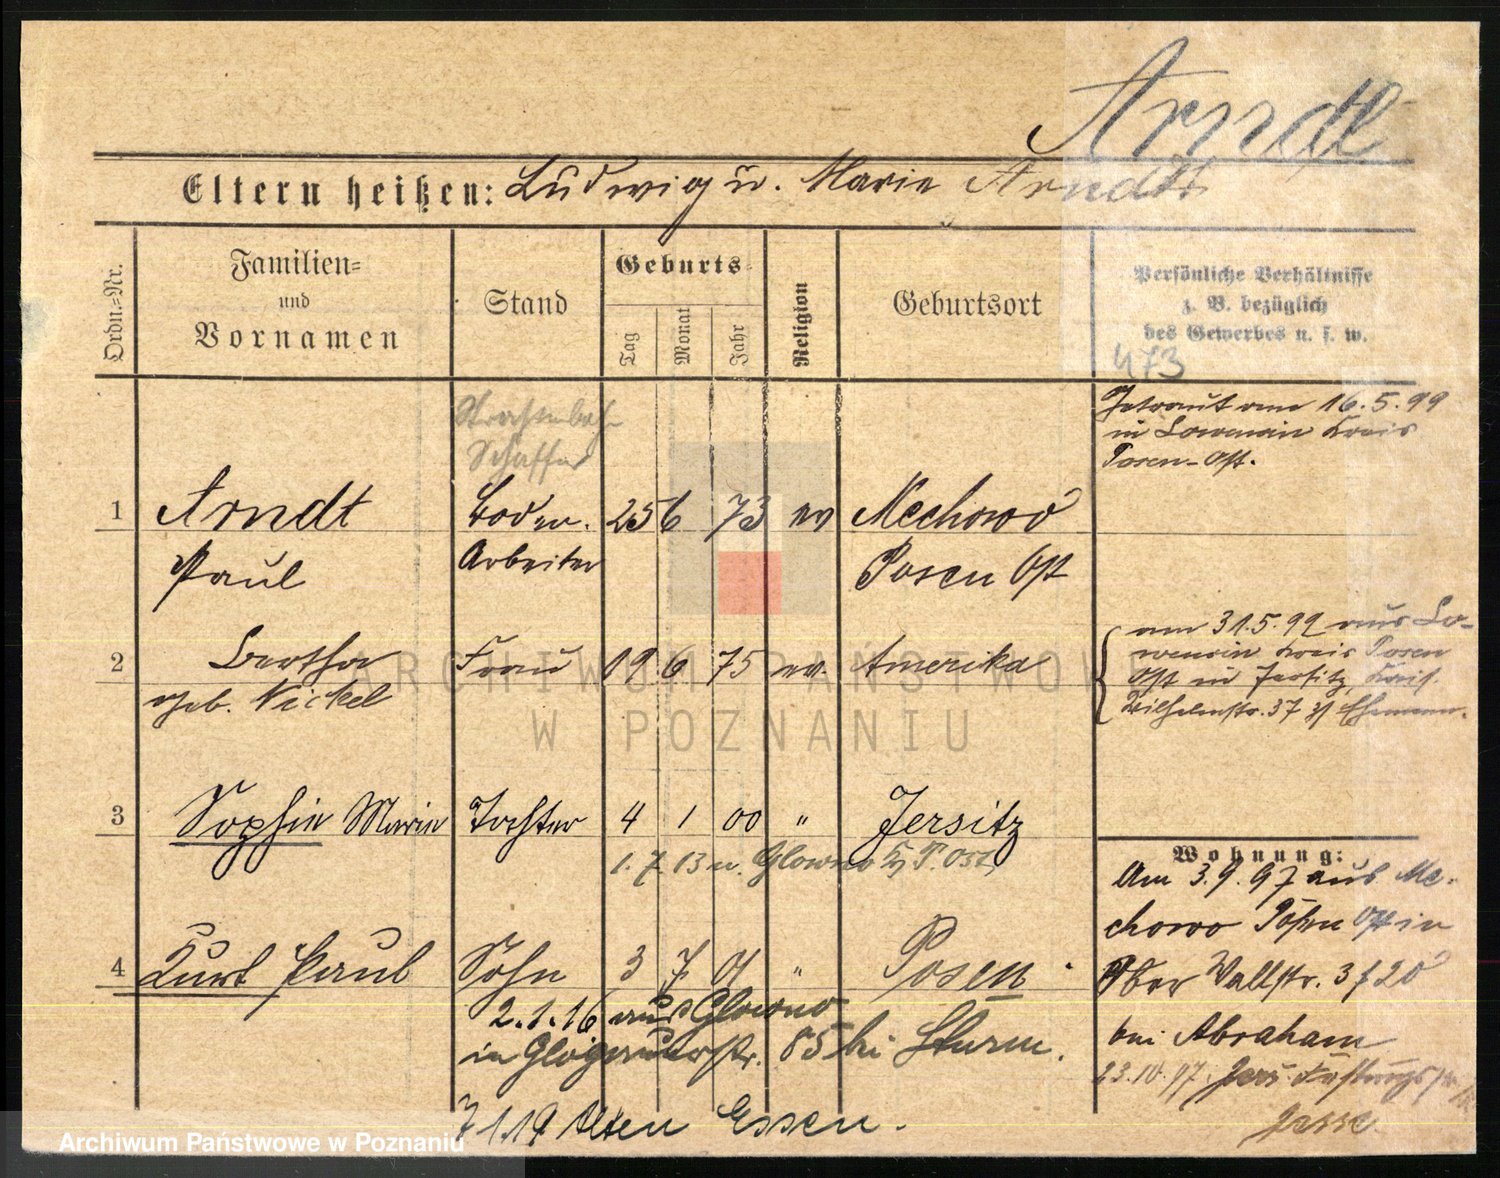 Arndt
Eltern heißen: Ludwig u. Marie Arndt
Ordn.=Nr.
Familien=
und
Vornamen
Stand
Geburts=
Tag
Monat
Jahr
Religion
Geburtsort
Persönliche Verhältnisse
z. B. bezüglich
des Gewerbes u. s. w.
473
Getraut am 16.5.99
in Kreis
Posen-Ost.
Straßenbah-
Schaffner
1 Arndt 25 6 73 ev Mechowo
Paul Arbeiter Posen Ost
am 31.5.99 aus
Kreis Posen
Ost in Jersitz,
Wilhelmstr. 37 z/ Ehemann.
2 Bertha Frau 19 6 75 ev. Amerika
geb. Nickel
3 Sophie Marie Tochter 4 1 00 " Jersitz
1. 7. 13 n. Glowno Kr P. Ost
Wohnung:
Am 3.9.97 aus Me-
chowo Posen Ost in
Ober Wallstr. 3
bei Abraham
23.10.97 Jers.
4 Kurt Paul Sohn 3 7 01 " Posen
2.1.16 aus Glowno
in Glogauerstr. 85 bei Sturm.
7 1.19 Alten Essen.
ARCHIWUM PAŃSTWOWE
W POZNANIU
Archiwum Państwowe w Poznaniu